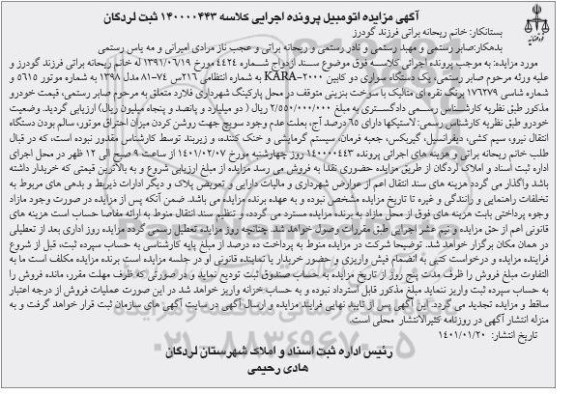 آگهی مزایده اتومبیل پرونده اجرایی کلاسه ۱۴۰۰۰۰۴۴۳ ثبت لردگان
بستانکار: خانم ریحانه براتی فرزند گودرز
بدهکار: صابر رستمی و مهبد رستمی و نادر رستمی و ریحانه براتی و عجب ناز مرادی امیرانی و مه یاس رستمی
مورد مزایده: به موجب پرونده اجرائی کلاسه فوق سند ازدواج شماره ۴۴۲۴ مورخ ۱۳۹۱/۰۶/۱۹ له خانم ریحانه براتی فرزند گودرز و
علیه ورثه مرحوم صابر رستمی، یک دستگاه سواری دو کابین KARA-۲۰۰۰ به شماره انتظامی ۲۱۶س ۷۴-۸۱ مدل ۱۳۹۸ به شماره موتور ۵۶۱۵ و
شماره شاسی ۱۷۶۲۷۹ برنگ نقره ای متالیک با سوخت بنزینی متوقف در محل پارکینگ شهرداری فلارد متعلق به مرحوم صابر رستمی، قیمت خودرو
مذکور طبق نظریه کارشناس رسمی دادگستری به مبلغ ۲/۵۵۰/۰۰۰/۰۰۰ ریال ( دو میلیارد و پانصد و پنجاه میلیون ریال) ارزیابی گردید. وضعیت
خودرو طبق نظریه کارشناس رسمی: لاستیکها دارای ۶۵ درصد آج، بعلت عدم وجود سویچ جهت روشن کردن میزان احتراق موتور، سالم بودن دستگاه
انتقال نیرو، سیم کشی، دیفرانسیل، گیربکس، جعبه فرمان، سیستم گرمایشی و خنک کننده، و زیربند توسط کارشناس مقدور نبوده است، که در قبال
طلب خانم ریحانه براتی و هزینه های اجرائی پرونده ۱۴۰۰۰۰۴۴۳ روز چهارشنبه مورخ ۱۴۰۱/۰۲/۰۷ از ساعت ۹ صبح الی ۱۲ ظهر در محل اجرای
اداره ثبت اسناد و املاک لردگان از طریق مزایده حضوری نقدا به فروش می رسد مزایده از مبلغ ارزیابی شروع و به بالاترین قیمتی که خریدار داشته
باشد واگذار می گردد هزینه های سند انتقال اعم از عوارض شهرداری و مالیات دارایی و تعویض پلاک و دیگر ادارات ذیربط و بدهی های مربوط به
تخلفات راهنمایی و رانندگی و غیره تا تاریخ مزایده مشخص نبوده و به عهده برنده مزایده می باشد. ضمن آنکه پس از مزایده در صورت وجود مازاد
وجوه پرداختی بابت هزینه های فوق از محل مازاد به برنده مزایده مسترد می گردد، و تنظیم سند انتقال منوط به ارائه مفاصا حساب است هزینه های
قانونی اعم از حق مزایده و نیم عشر اجرایی طبق مقررات وصول خواهد شد چنانچه روز مزایده تعطیل رسمی گردد مزایده روز اداری بعد از تعطیلی
در همان مکان برگزار خواهد شد. توضیحا شرکت در مزایده منوط به پرداخت ده درصد از مبلغ پایه کارشناسی به حساب سپرده ثبت، قبل از شروع
فراینده مزایده و درخواست کتبی به انضمام فیش واریزی و حضور خریدار یا نماینده قانونی او در جلسه مزایده است برنده مزایده مکلف است ما به
التفاوت مبلغ فروش را ظرف مدت پنج روز از تاریخ مزایده به حساب صندوق ثبت تودیع نماید و در صورتی که ظرف مهلت مقرر، مانده فروش را
به حساب سپرده ثبت واریز ننماید مبلغ مذکور قابل استرداد نبوده و به حساب خزانه واریز خواهد شد در این صورت عملیات فروش از درجه اعتبار
ساقط و مزایده تجدید می گردد. این آگهی پس از تایید نهایی فرایند مزایده و ارسال آگهی در سایت آگهی های سازمان ثبت قرار خواهد گرفت و به
منزله انتشار آگهی در روزنامه کثیرالانتشار محلی است.
تاریخ انتشار: ۱۴۰۱/۰۱/۲۰
رئیس اداره ثبت اسناد و املاک شهرستان لردگان
هادی رحیمی
۰۲۱-۸۸۳۴۹۶۷۰-۵